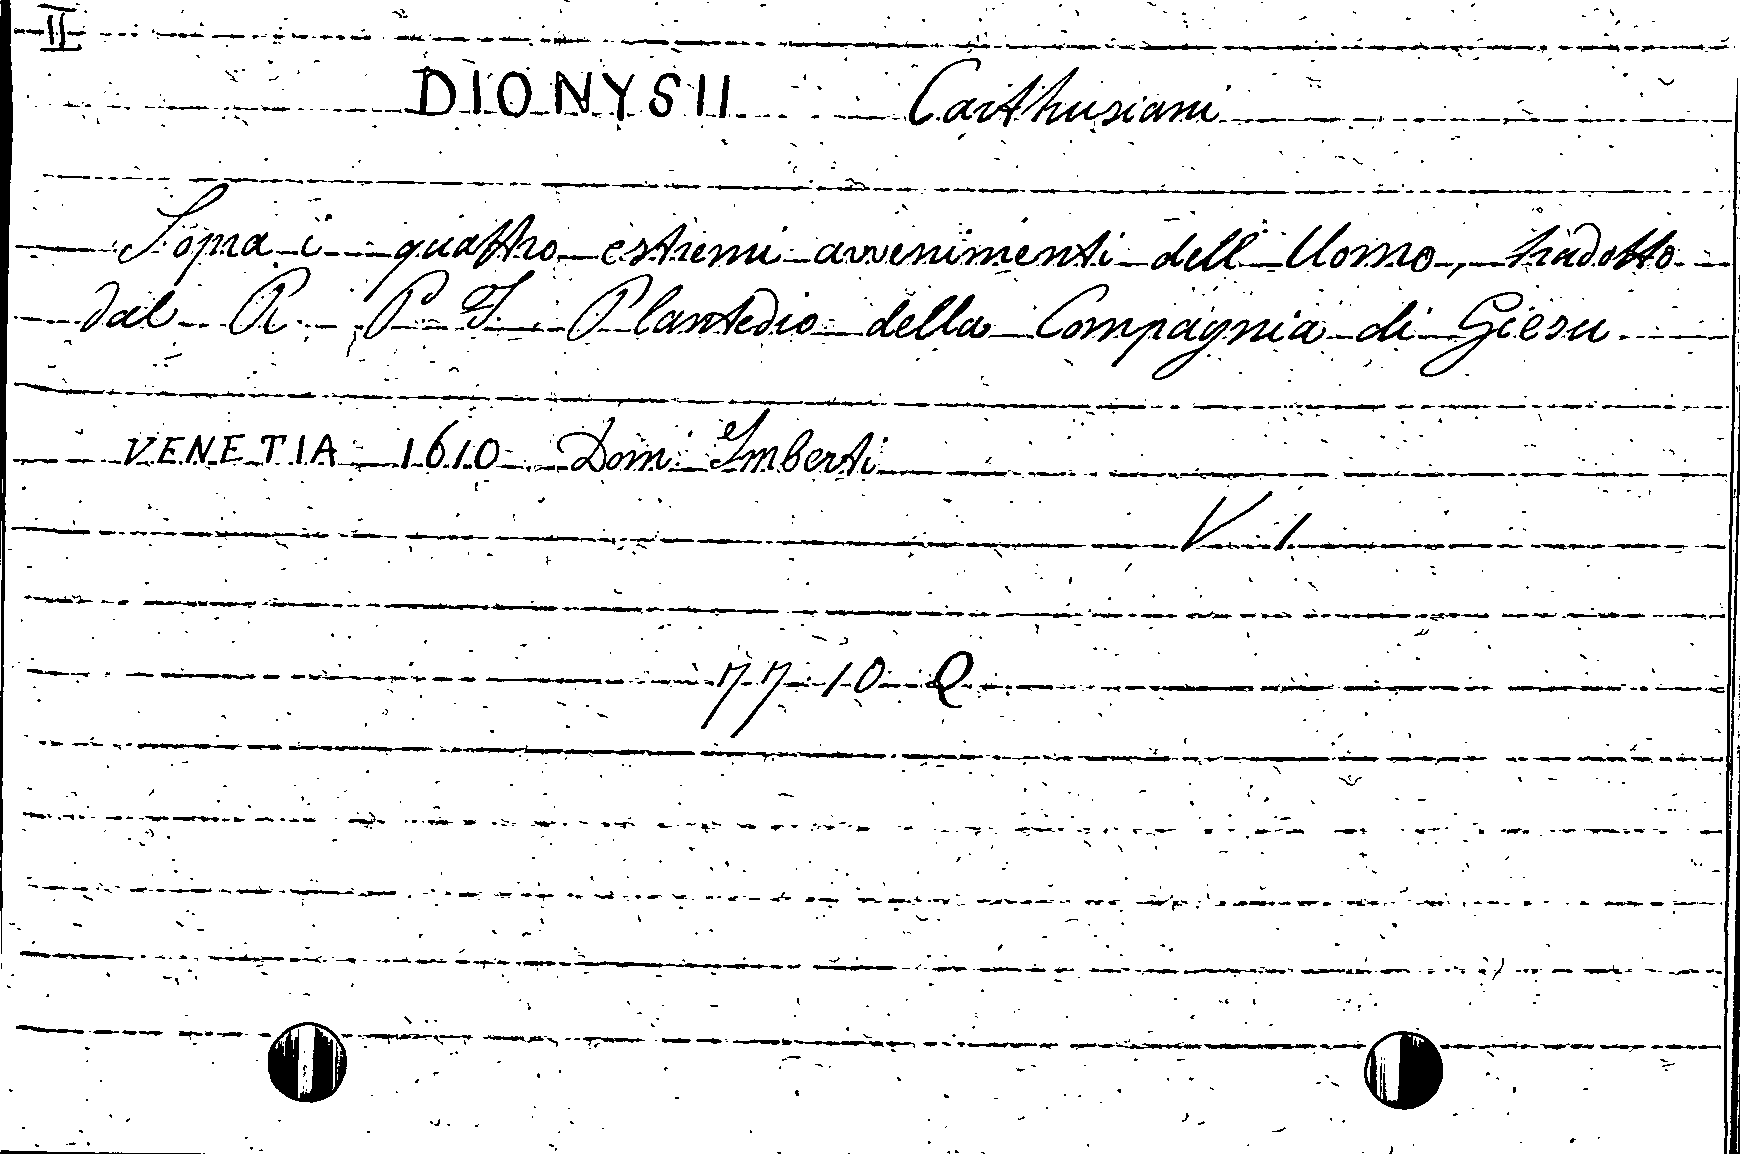 II
DIONYSII Carthusiani
Sopra i quattro estremi avvenimenti dell' Uomo, tradotto
dal R. P. F. Plantedio della Compagnia di Giesu
VENETIA 1610 Dom. Imberti
V. 1
77 10 Q